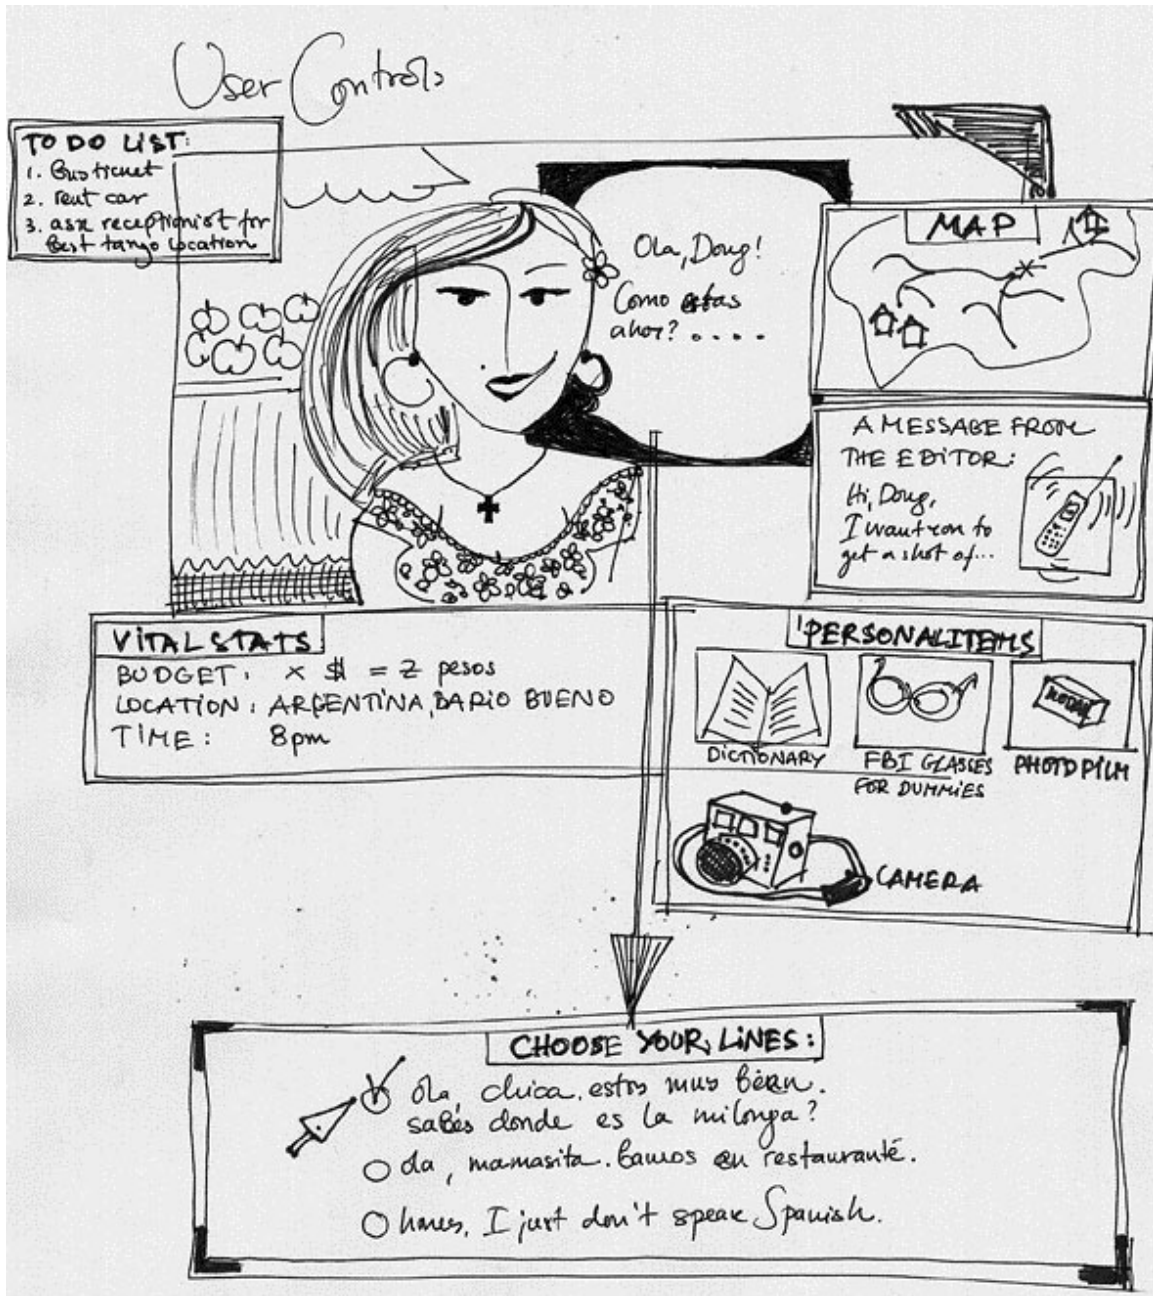 User Controls
TO DO LIST:
1. Bus ticket
2. rent car
3. ask receptionist for
best tango location
Ola, Doug!
Como estas
ahor? . . . .
MAP
A MESSAGE FROM
THE EDITOR:
Hi, Doug,
I want you to
get a shot of...
VITAL STATS
BUDGET: x $ = Z pesos
LOCATION: ARGENTINA, BARIO BUENO
TIME: 8pm
PERSONAL ITEMS
DICTIONARY
FBI GLASSES
FOR DUMMIES
KODAK
PHOTO FILM
CAMERA
CHOOSE YOUR LINES:
Ola, chica. estoy muy bien.
sabes donde es la milonga?
Ola, mamasita. bamos en restauranté.
I just don't speak Spanish.